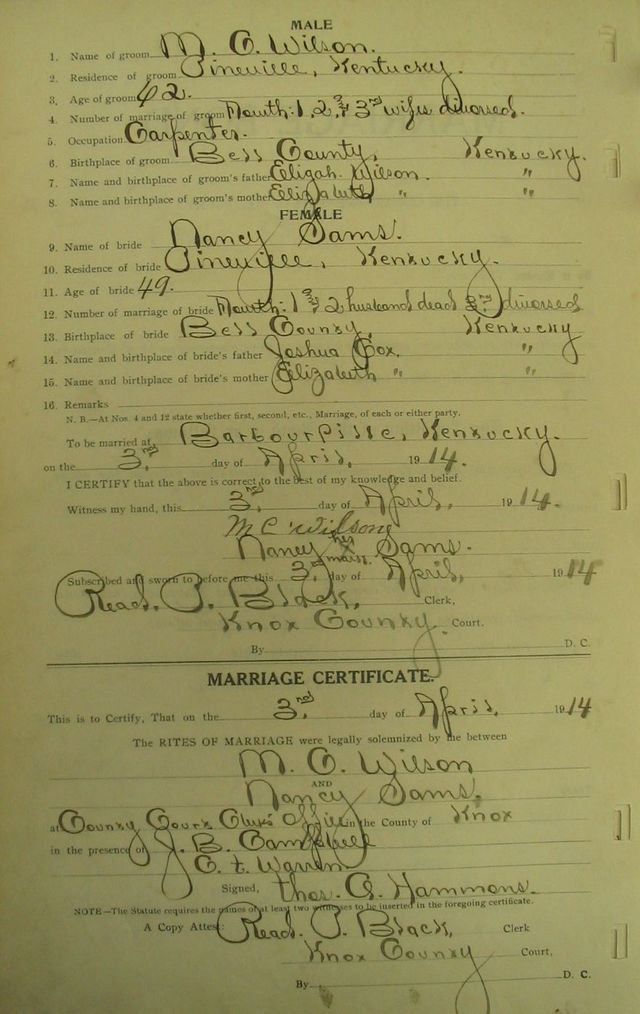 MALE
1. Name of groom M. C. Wilson.
2. Residence of groom Pineville, Kentucky.
3. Age of groom 62.
4. Number of marriage of groom Fourth: 1, 2, & 3rd wifes divorsed.
5. Occupation Carpenter.
6. Birthplace of groom Bell County, Kentucky.
7. Name and birthplace of groom's father Eligah Wilson. "
8. Name and birthplace of groom's mother Elizabeth " "
FEMALE
9. Name of bride Nancy Sams.
10. Residence of bride Pineville, Kentucky.
11. Age of bride 49.
12. Number of marriage of bride Fourth: 1 & 2 husband dead 3rd divorsed
13. Birthplace of bride Bell County, Kentucky
14. Name and birthplace of bride's father Joshua Cox. "
15. Name and birthplace of bride's mother Elizabeth " "
16. Remarks
N. B.—At Nos. 4 and 12 state whether first, second, etc., Marriage, of each or either party.
To be married at Barbourville, Kentucky.
on the 3rd day of April, 1914.
I CERTIFY that the above is correct to the best of my knowledge and belief.
Witness my hand, this 3rd day of April, 1914.
M C Wilson
Nancy her X mark Sams.
Subscribed and sworn to before me this 3rd day of April, 1914
Read P. Black, Clerk,
Knox County. Court.
By D. C.
MARRIAGE CERTIFICATE.
This is to Certify, That on the 3rd day of April, 1914
The RITES OF MARRIAGE were legally solemnized by me between
M. C. Wilson
AND
Nancy Sams.
at County Court Clerks Office in the County of Knox
in the presence of J. B. Campbell
C. t. Warren
Signed, thos. G. Hammons.
NOTE—The Statute requires the names of at least two witnesses to be inserted in the foregoing certificate.
A Copy Attest: Read. P. Black, Clerk
Knox County Court,
By D. C.